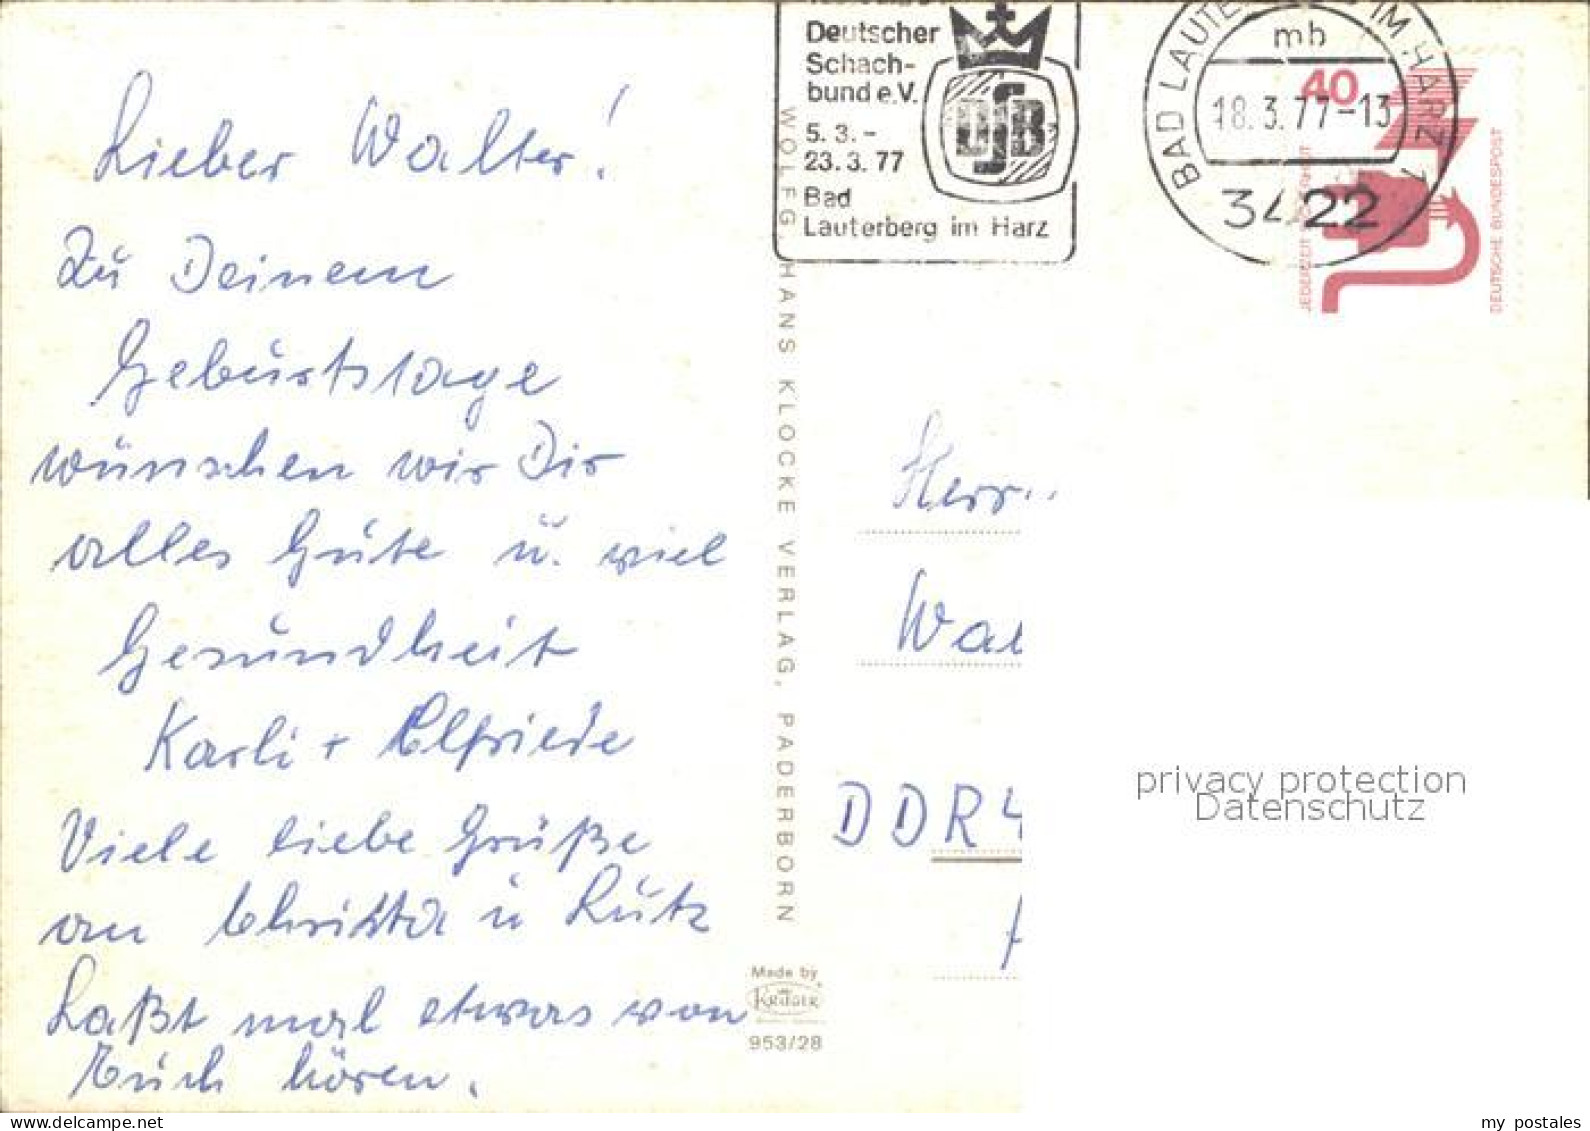 Lieber Walter!
Zu Deinem
Geburtstage
wünschen wir Dir
alles Gute u. viel
Gesundheit
Karli + Elfriede
Viele liebe Grüße
an Christa u Lutz
Laßt mal etwas von
Euch hören.
Deutscher
Schach-
bund e.V.
5. 3. -
23. 3. 77
Bad
Lauterberg im Harz
DSB
BAD LAUTE IM HARZ 1
mb
18.3.77-13
3422
40
JEDERZEIT SICHERHEIT
DEUTSCHE BUNDESPOST
WOLFG HANS KLOCKE VERLAG, PADERBORN
Made by
KRÜGER
953/28
Herrn
Wal
DDR 4
privacy protection
Datenschutz
my postales